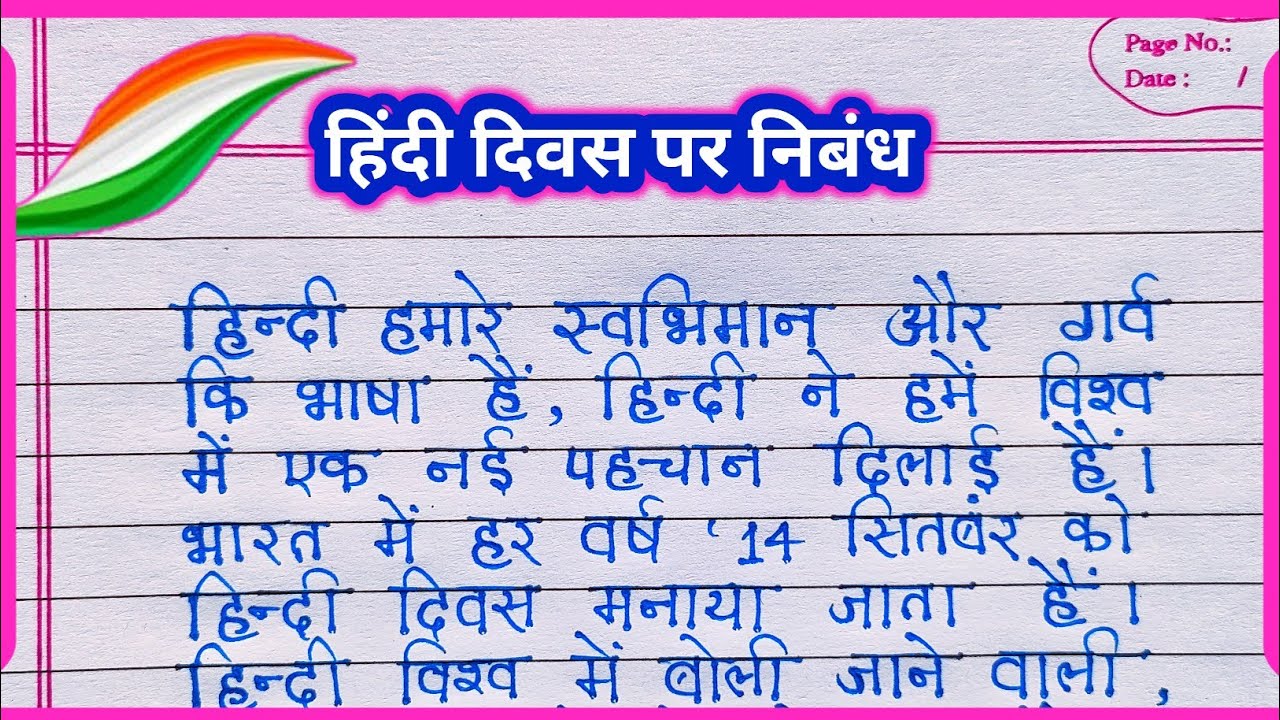 Page No.:
Date : /
हिंदी दिवस पर निबंध
हिन्दी हमारे स्वभिमान और गर्व
कि भाषा हैं, हिन्दी ने हमें विश्व
में एक नई पहचान दिलाई हैं।
भारत में हर वर्ष '14 सितबंर को
हिन्दी दिवस मनाया जाता हैं।
हिन्दी विश्व में बोली जाने वाली,